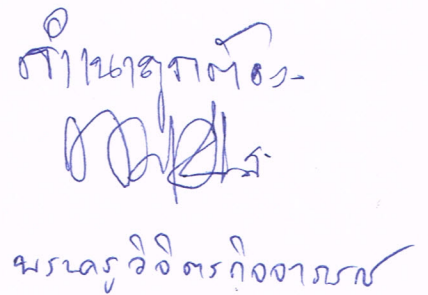 สำเนาถูกต้อง
พระครูวิจิตรกิจจาภรณ์